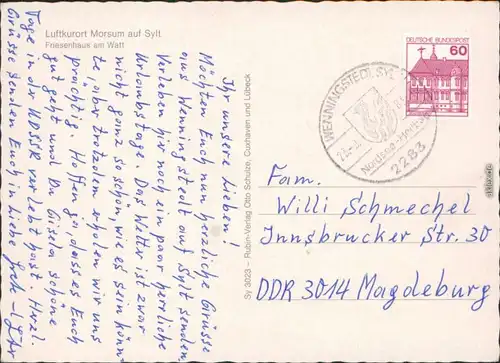 Luftkurort Morsum auf Sylt
Friesenhaus am Watt
Ihr unsere Lieben!
Möchten Euch nun herzliche Grüsse
aus Wenningstedt auf Sylt senden.
Verleben hier noch ein paar herrliche
Urlaubstage. Das Wetter ist zwar
nicht ganz so schön, wie es sein könn-
te, aber trotzdem erholen wir uns
prächtig. Hoffen ja, dass es Euch
gut geht und Du Gisela schöne
Tage in der UDSSR verlebt hast. Herzl.
Grüsse senden Euch in Liebe
Sy 3023 – Rubin-Verlag Otto Schulze, Cuxhaven und Lübeck
DEUTSCHE BUNDESPOST
60
WENNINGSTEDT, SYLT
Nordsee-Heilbad
2283
Fam.
Willi Schmechel
Innsbrucker Str. 30
DDR 3014 Magdeburg